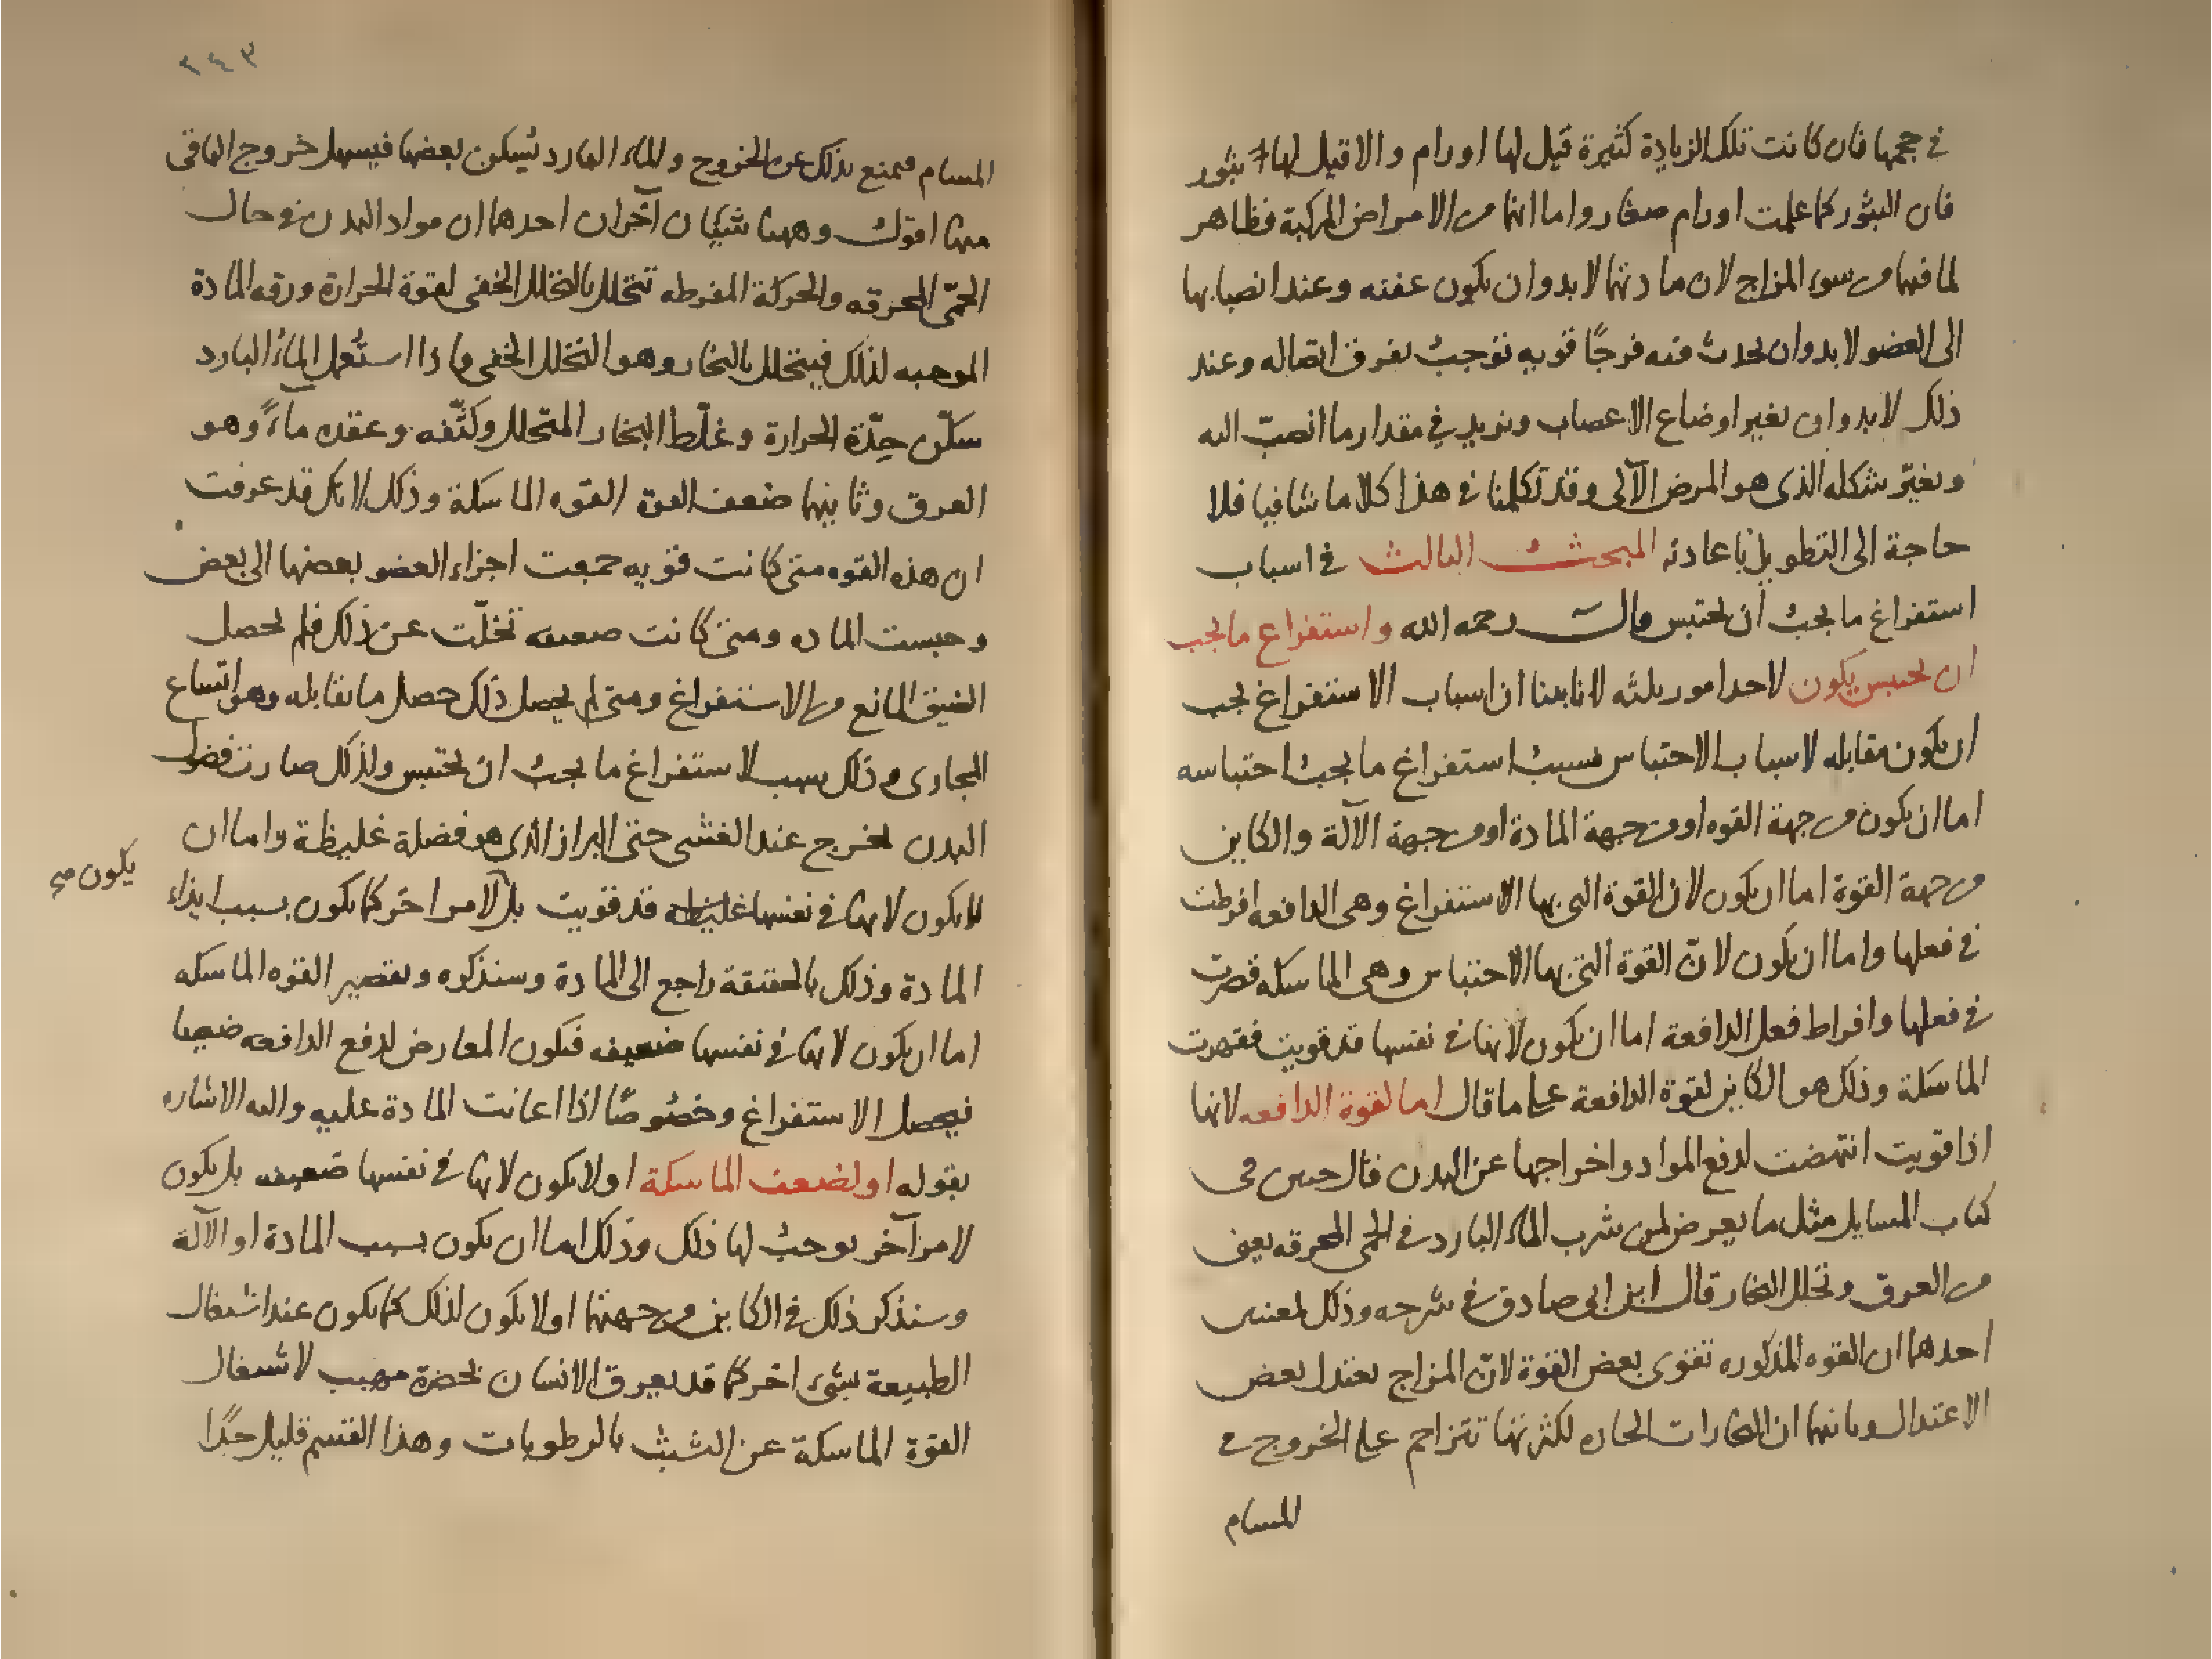 في حجمها فان كانت تلك الزيادة كثيرة قيل لها اورام والا قيل لها بثور
فان البثور كما علمت اورام صغار واما انها من الامراض المركبة فظاهر
لما فيها من سوء المزاج لان مادتها لا بد وان يكون عفنه وعند انصبابها
الى العضو لا بد وان يحدث فيه فرجًا قويه توجبُ تفرق اتصاله وعند
ذلك لا بد وان تغير اوضاع الاعصاب وتزيد في مقدار ما انصبّ اليه
وتغيّر شكله الذي هو المرض الآلى وقد تكلمنا في هذا كلاما شافيا فلا
حاجة الى التطويل باعادته المبحث الثالث في اسباب
استفراغ ما يجبُ أن يحتبس قال رحمه الله واستفراغ ما يجب
ان يحتبس يكون لاحد امور ثلثه لانا بينا ان اسباب الاستفراغ يجب
ان يكون مقابله لاسباب الاحتباس فسببُ استفراغ ما يجبُ احتباسه
اما ان يكون من جهة القوه او من جهة المادة او من جهة الآلة والكاين
من جهة القوة اما ان يكون لان القوة التي بها الاستفراغ وهي الدافعه افرطت
في فعلها واما ان يكون لانّ القوة التي بها الاحتباس وهي الماسكه قصرت
في فعلها وافراط فعل الدافعة اما ان يكون لانها في نفسها قد قويت فقهرت
الماسكة وذلك هو الكاين لقوة الدافعة على ما قال اما لقوة الدافعه لانها
اذا قويت انتهضت لدفع المواد واخراجها عن البدن قال حنين في
كتاب المسايل مثل ما يعرض لمن شرب الماء البارد في الحمى المحرقه يعنى
من العرق وتحلل البخار قال ابن ابي صادق في شرحه وذلك لمعنيين
احدهما ان القوه المذكوره تقوى بعض القوة لانّ المزاج يعتدل بعض
الاعتدال وثانيها ان البخارات الحاره لكثرتها تتزاحم على الخروج من
المسام
٢٤٣
المسام فيمنع بذلك عن الخروج والماء البارد يُسكن بعضها فيسهل خروج الباقى
منها اقول وههنا شيئان آخران احدهما ان مواد البدن في حال
الحمّى المحرقه والحركة المفرطه تتحلل بالتحلل الخفى لقوة الحرارة ورقه المادة
الموجبه لذلك فيتحلل بالبخار وهو التحلل الخفى واذا استُعمل الماءُ البارد
سكّن حِدّة الحرارة وغلّظ البخار المتحلل وكثّفه وعقده ماءً وهو
العرق وثانيها ضعف القوة القوه الماسكة وذلك لانك قد عرفت
ان هذه القوه متى كانت قويه جمعت اجزاء العضو بعضها الى بعض
وحبست الماده ومتى كانت ضعيفه تخلّت عن ذلك فلم يحصل
الضيق المانع من الاستفراغ ومتى لم يحصل ذلك حصل ما يقابله وهو اتساع
المجارى وذلك سبب لاستفراغ ما يجبُ ان يحتبس ولذلك صارت فضول
البدن تخرج عند الغشى حتى البراز الذي هو فضلة غليظة واما ان
لا يكون لانها في نفسها غليظه قد قويت بل لامر اخر كما يكون بسبب ايذاء
يكون صح
المادة وذلك بالحقيقة راجع الى المادة وسنذكره وتقصير القوه الماسكه
اما ان يكون لانها في نفسها ضعيفه فيكون المعارض لدفع الدافعه ضعيفا
فيحصل الاستفراغ وخصُوصًا اذا اعانت المادة عليه واليه الاشاره
بقوله او لضعف الماسكة او لا يكون لانها في نفسها ضعيفه بل يكون
لامر آخر يوجبُ لها ذلك وذلك اما ان يكون بسبب المادة او الآلة
وسنذكر ذلك في الكاين من جهتها او لا يكون لذلك كما يكون عند اشتغال
الطبيعة بشيء اخر كما قد يعرق الانسان بحضرة مهيب لاشتغال
القوة الماسكة عن التشبث بالرطوبات وهذا القسم قليل جدًا